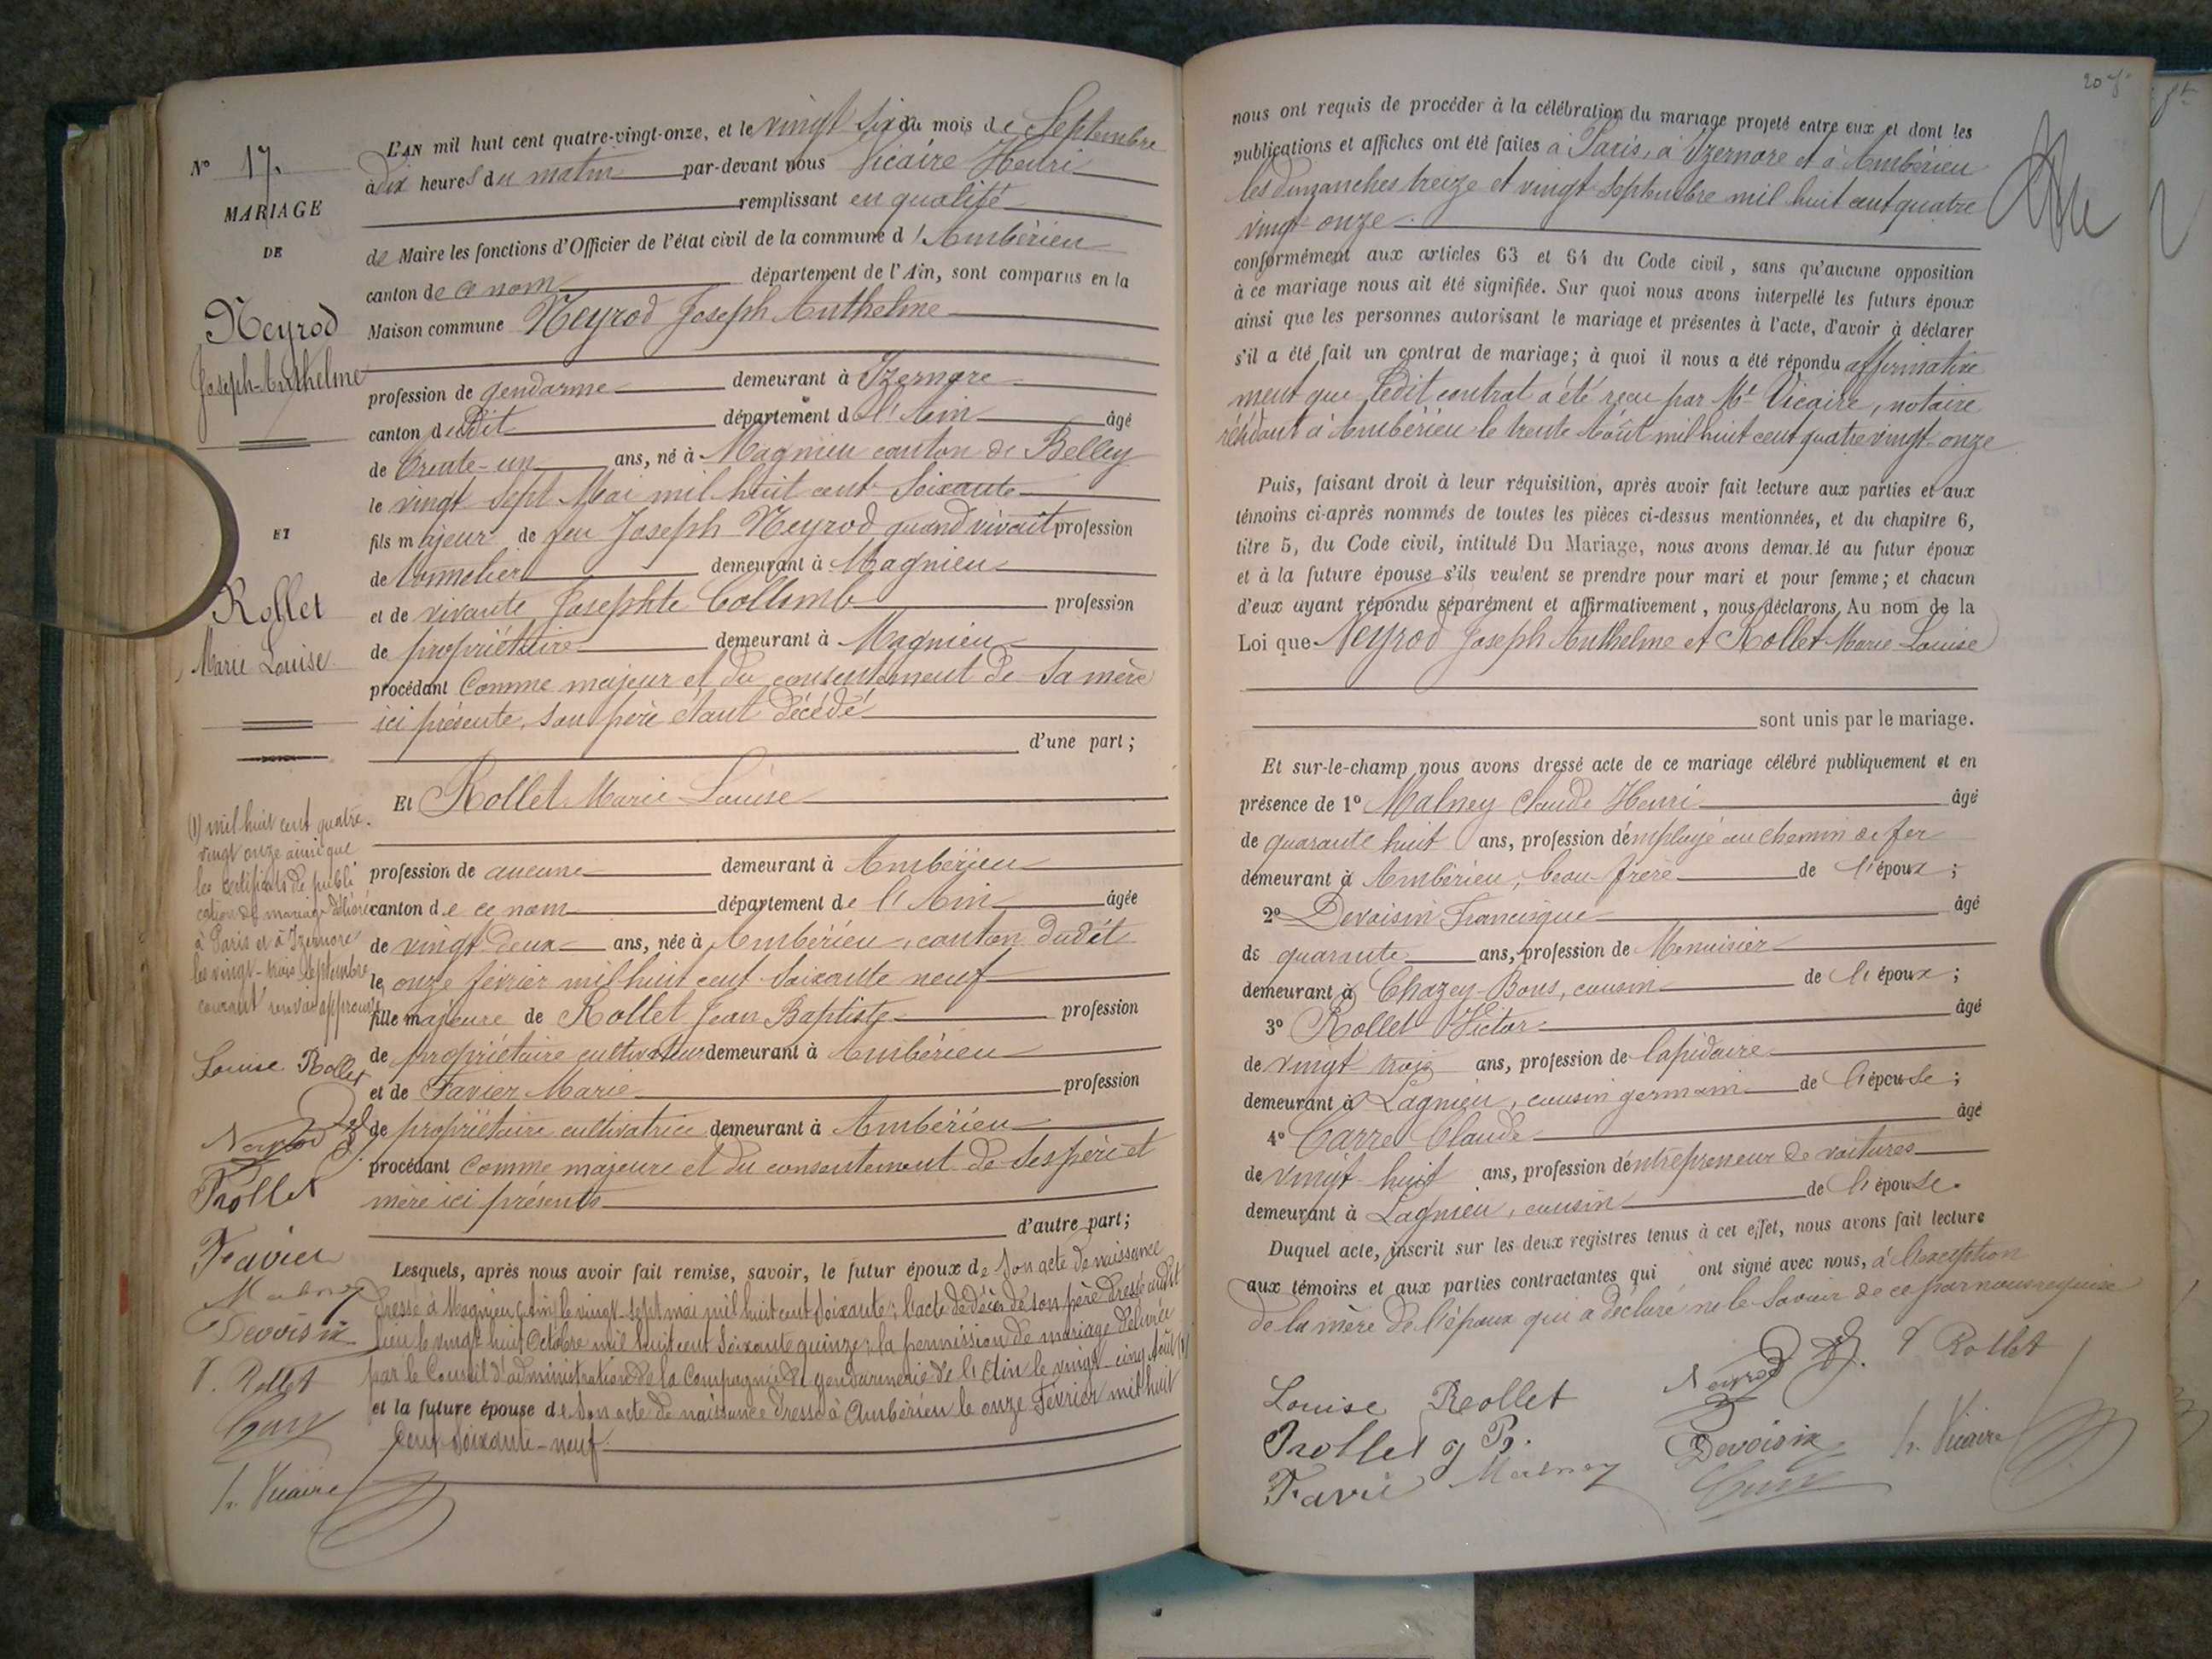 N° 17.
MARIAGE
DE
Neyrod
Joseph-Anthelme
ET
Rollet
Marie Louise
L'AN mil huit cent quatre-vingt-onze, et le vingt six du mois de Septembre
à dix heures du matin par-devant nous Vicaire Henri
remplissant en qualité
de Maire les fonctions d'Officier de l'état civil de la commune d'Ambérieu
canton de ce nom département de l'Ain, sont comparus en la
Maison commune Neyrod Joseph Anthelme
profession de gendarme demeurant à Izernore
canton dudit département de l'Ain âgé
de trente-un ans, né à Magnieu canton de Belley
le vingt sept Mai mil huit cent soixante
fils majeur de feu Joseph Neyrod quand vivait profession
de tonnelier demeurant à Magnieu
et de vivante Josephte Collomb profession
de propriétaire demeurant à Magnieu
procédant comme majeur et du consentement de sa mère
ici présente, son père étant décédé
d'une part;
Et Rollet Marie Louise
profession de aucune demeurant à Ambérieu
canton de ce nom département de l'Ain âgée
de vingt deux ans, née à Ambérieu, canton dudit
le onze février mil huit cent soixante neuf
fille majeure de Rollet Jean Baptiste profession
de propriétaire cultivateur demeurant à Ambérieu
et de Favier Marie profession
de propriétaire cultivatrice demeurant à Ambérieu
procédant comme majeure et du consentement de ses père et
mère ici présents
d'autre part;
Lesquels, après nous avoir fait remise, savoir, le futur époux de son acte de naissance
dressé à Magnieu (Ain) le vingt-sept mai mil huit cent soixante; l'acte de décès de son père dressé audit
lieu le vingt huit Octobre mil huit cent soixante quinze; la permission de mariage délivrée
par le Conseil d'administration de la Compagnie de gendarmerie de l'Ain le vingt-cinq Août (1)
et la future épouse de son acte de naissance dressé à Ambérieu le onze Février mil huit
cent soixante-neuf.
(1) mil huit cent quatre-
vingt onze ainsi que
les certificats de publi
cation de mariage délivrés
à Paris et à Izernore
les vingt-trois septembre
courant renvoi approuvé
Louise Rollet
Neyrod
Rollet
Favier
Malney
Devoisin
V. Rollet
h. Vicaire
nous ont requis de procéder à la célébration du mariage projeté entre eux et dont les
publications et affiches ont été faites à Paris, à Izernore et à Ambérieu
les dimanches treize et vingt Septembre mil huit cent quatre
vingt-onze
conformément aux articles 63 et 64 du Code civil, sans qu'aucune opposition
à ce mariage nous ait été signifiée. Sur quoi nous avons interpellé les futurs époux
ainsi que les personnes autorisant le mariage et présentes à l'acte, d'avoir à déclarer
s'il a été fait un contrat de mariage; à quoi il nous a été répondu affirmative
ment que ledit contrat a été reçu par Mt Vicaire, notaire
résidant à Ambérieu le trente Août mil huit cent quatre vingt-onze
Puis, faisant droit à leur réquisition, après avoir fait lecture aux parties et aux
témoins ci-après nommés de toutes les pièces ci-dessus mentionnées, et du chapitre 6,
titre 5, du Code civil, intitulé Du Mariage, nous avons demandé au futur époux
et à la future épouse s'ils veulent se prendre pour mari et pour femme; et chacun
d'eux ayant répondu séparément et affirmativement, nous déclarons, Au nom de la
Loi que Neyrod Joseph Anthelme et Rollet Marie Louise
sont unis par le mariage.
Et sur-le-champ nous avons dressé acte de ce mariage célébré publiquement et en
présence de 1° Malney Claude Henri âgé
de quarante huit ans, profession d'employé au chemin de fer
demeurant à Ambérieu, beau-frère de l'époux;
2° Devoisin Francisque âgé
de quarante ans, profession de Menuisier
demeurant à Chazey-Bons, cousin de l'époux;
3° Rollet Victor âgé
de vingt trois ans, profession de lapidaire
demeurant à Lagnieu, cousin germain de l'épouse;
4° Carrel Claude âgé
de vingt-huit ans, profession d'entrepreneur de voitures
demeurant à Lagnieu, cousin de l'épouse.
Duquel acte, inscrit sur les deux registres tenus à cet effet, nous avons fait lecture
aux témoins et aux parties contractantes qui ont signé avec nous, à l'exception
de la mère de l'époux qui a déclaré ne le savoir de ce par nous requise
Neyrod V Rollet
Louise Rollet
Rollet J B. Devoisin h. Vicaire
Favié Malney